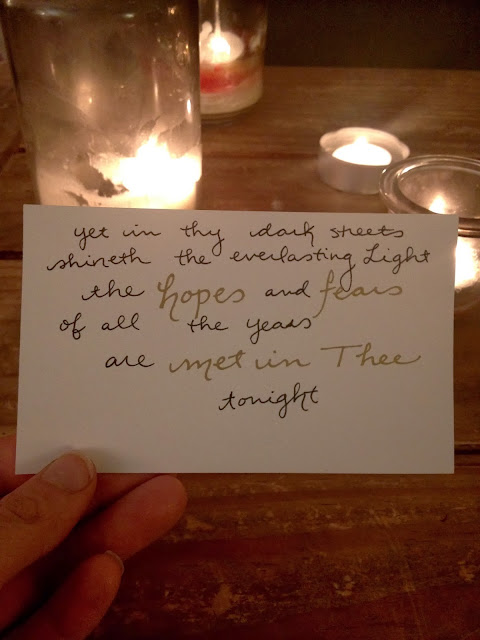 yet in thy dark streets
shineth the everlasting Light
the hopes and fears
of all the years
are met in Thee
tonight